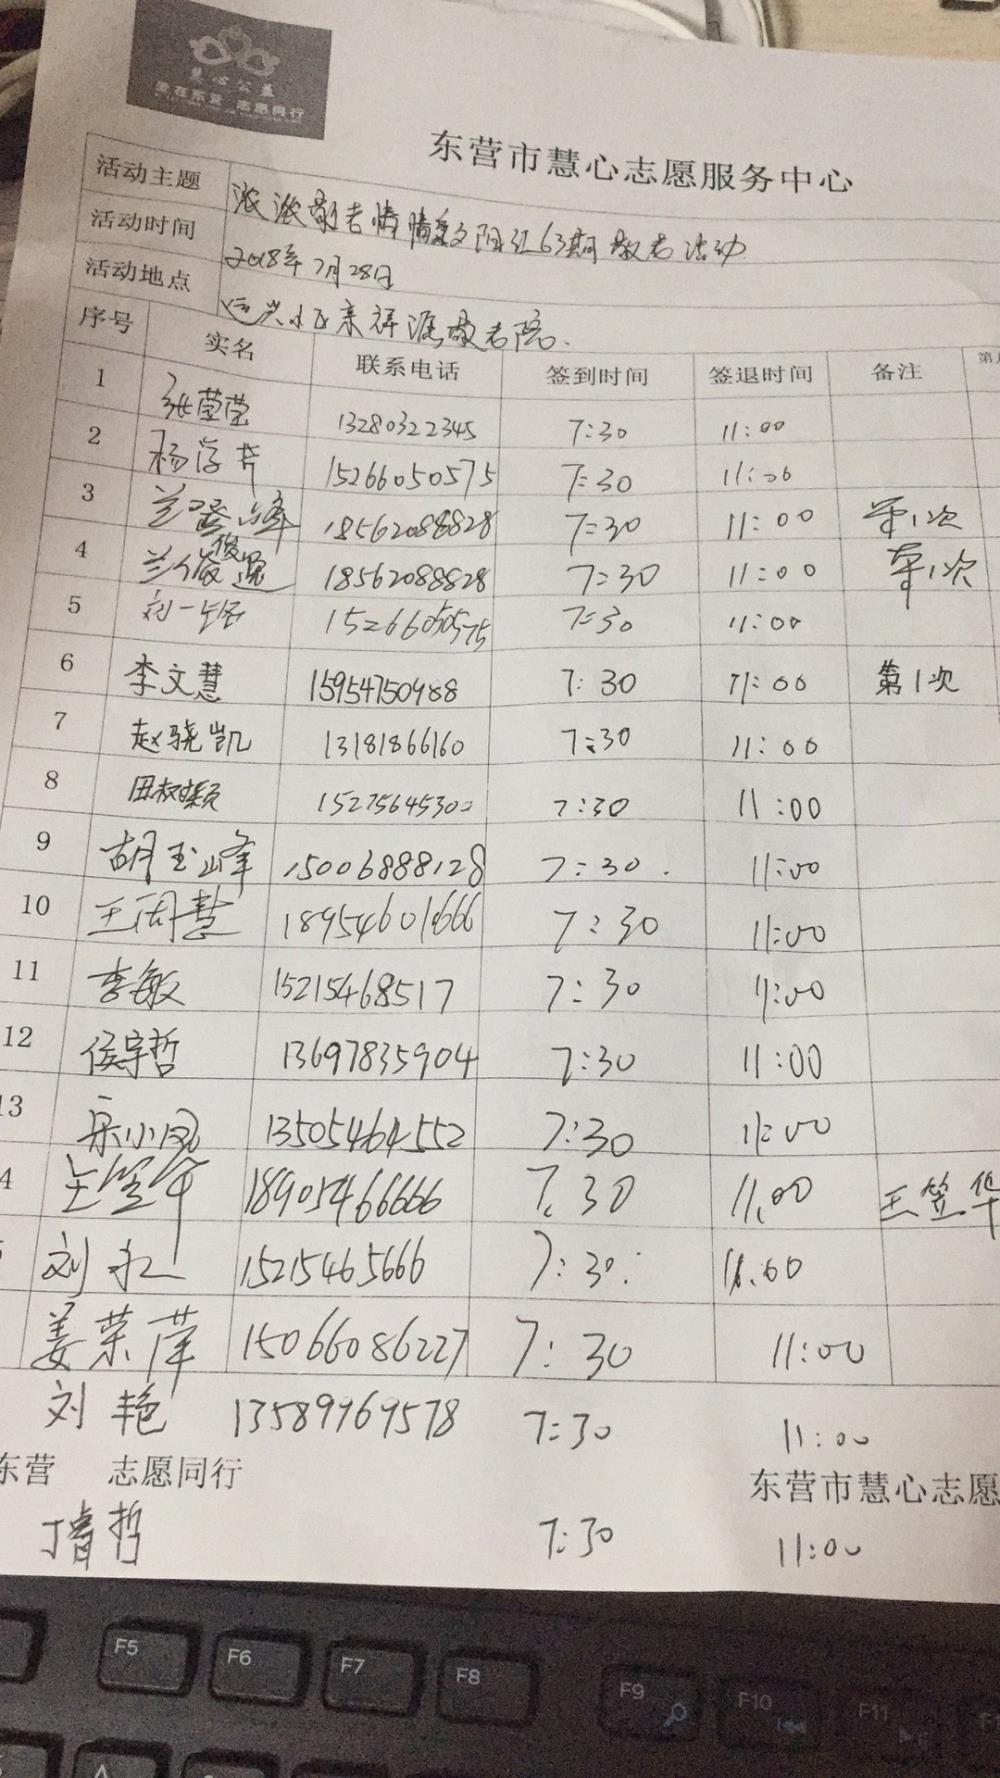 慧心公益
爱在东营 志愿同行
东营市慧心志愿服务中心
活动主题 浓浓敬老情 情系夕阳红63期敬老活动
活动时间 2018年7月28日
活动地点 敬老院.
序号 实名 联系电话 签到时间 签退时间 备注
1 张莹莹 13280322345 7:30 11:00
2 杨学芹 15266050575 7:30 11:00
3 兰登峰 18562088828 7:30 11:00 第1次
4 兰俊逸 18562088828 7:30 11:00 第1次
5 刘一 15266050575 7:30 11:00
6 李文慧 15954750988 7:30 11:00 第1次
7 赵骁凯 13181866160 7:30 11:00
8 田 15275645300 7:30 11:00
9 胡玉峰 15006888128 7:30 11:00
10 王周慧 18954601666 7:30 11:00
11 李敏 15215468517 7:30 11:00
12 侯宇哲 13697835904 7:30 11:00
13 宋小凤 13505464552 7:30 11:00
4 王笠华 18905466666 7:30 11:00 王笠华
刘永仁 15215465666 7:30 11:00
姜荣萍 15066086227 7:30 11:00
刘艳 13589969578 7:30 11:00
东营 志愿同行 东营市慧心志愿
丁睿哲 7:30 11:00
F5 F6 F7 F8 F9 F10 F11